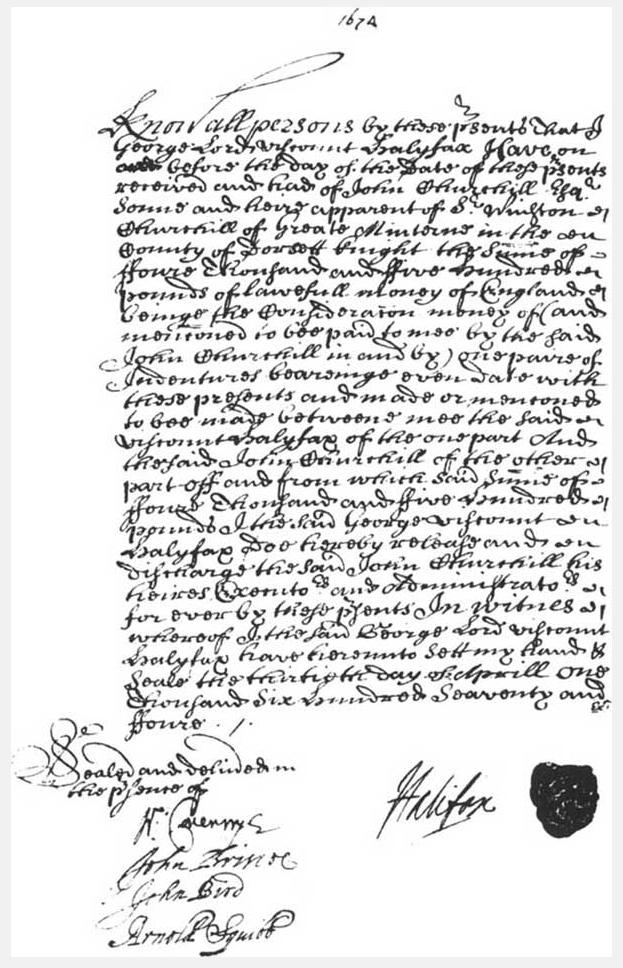 1674
Know all persons by these p'sents that I
George Lord Viscount Halyfax Have on
before the day of the date of these p'sents
received and had of John Churchill Esqr
Sonne and heire apparent of Sr Winston
Churchill of Greate Minterne in the
County of Dorsett Knight the Sume of
ffoure Thousand and ffive hundred
pounds of lawefull money of England
beinge the Consideracon money of (and
menconed to bee paid to mee by the said
John Churchill in and by) one paire of
Indentures beareinge even date with
these presents and made or menconed
to bee made betweene mee the said
Viscount Halyfax of the one part And
the said John Churchill of the other
part off and from which said Sume of
ffoure Thousand and ffive hundred
pounds I the said George Viscount
Halyfax doe hereby release and
discharge the said John Churchill his
heires Executors and Administrators
for ever by these p'sents In witnes
whereof I the said George Lord Viscount
Halyfax have hereunto sett my hand &
Seale the thirtieth day of Aprill One
Thousand Six hundred Seaventy and
ffoure
Sealed and delivered in
the p'sence of
Halifax
H: Coventrye
John Prince
John Bird
Arnold Squibb